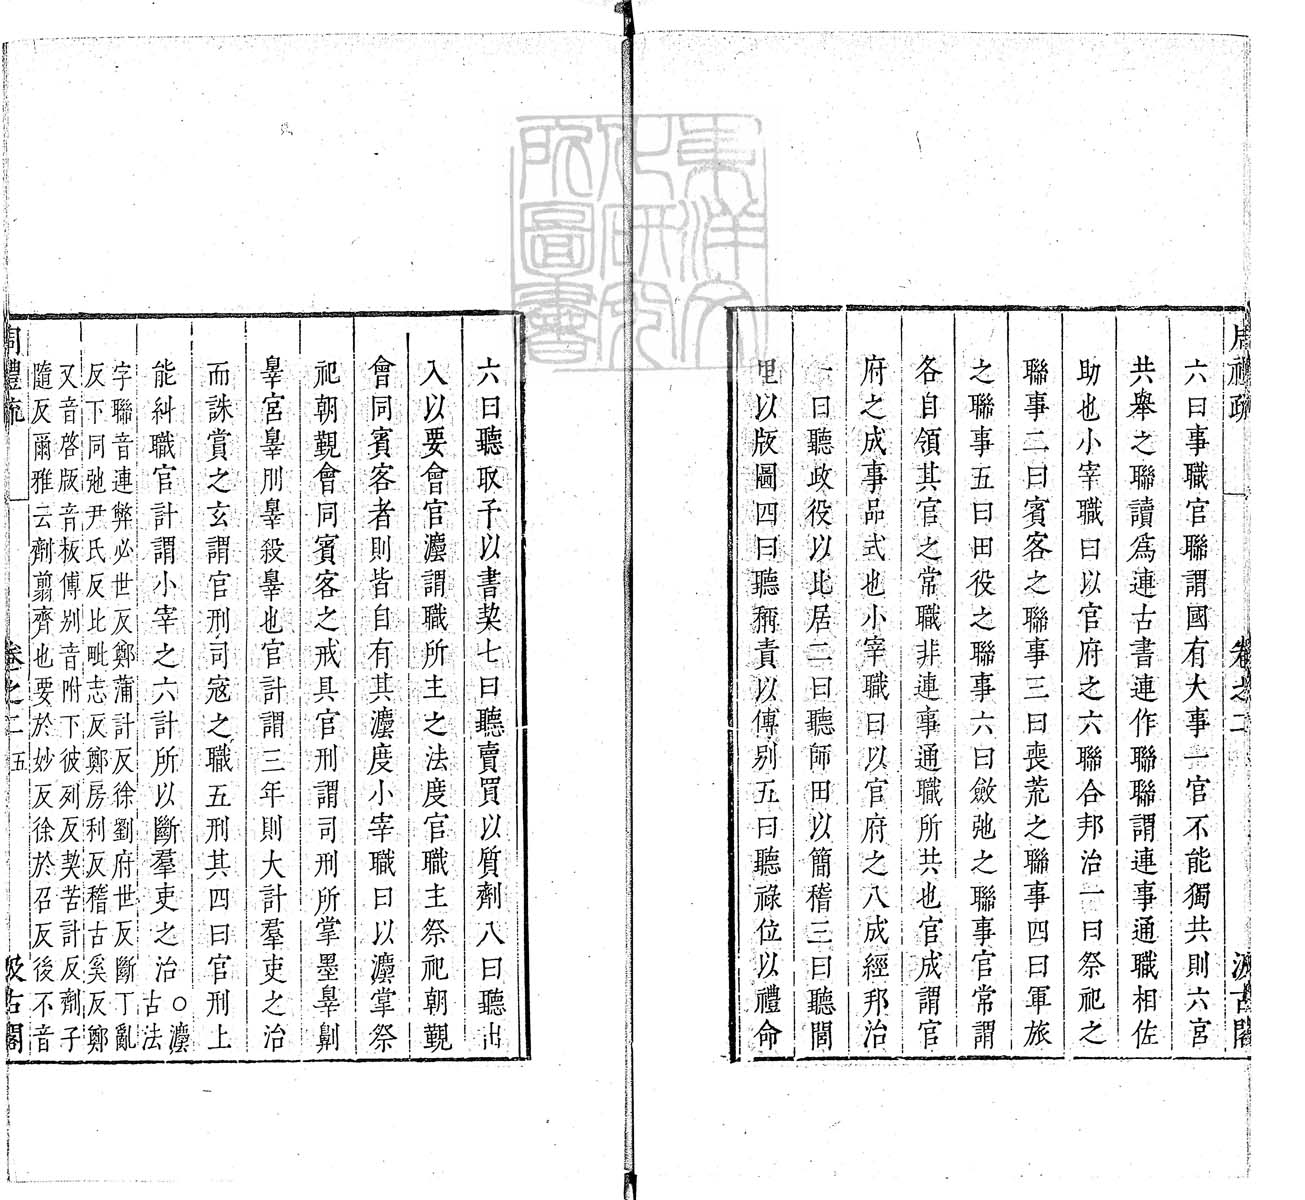 周禮疏 卷之二 汲古閣
六曰事職官聯謂國有大事一官不能獨共則六官
共舉之聯讀爲連古書連作聯聯謂連事通職相佐
助也小宰職曰以官府之六聯合邦治一曰祭祀之
聯事二曰賓客之聯事三曰喪荒之聯事四曰軍旅
之聯事五曰田役之聯事六曰斂弛之聯事官常謂
各自領其官之常職非連事通職所共也官成謂官
府之成事品式也小宰職曰以官府之八成經邦治
一曰聽政役以比居二曰聽師田以簡稽三曰聽閭
里以版圖四曰聽稱責以傅别五曰聽祿位以禮命
六曰聽取予以書契七曰聽賣買以質劑八曰聽出
入以要會官灋謂職所主之法度官職主祭祀朝覲
會同賓客者則皆自有其灋度小宰職曰以灋掌祭
祀朝覲會同賓客之戒具官刑謂司刑所掌墨辠劓
辠宮辠刖辠殺辠也官計謂三年則大計羣吏之治
而誅賞之玄謂官刑司寇之職五刑其四曰官刑上
能糾職官計謂小宰之六計所以斷羣吏之治○灋
古法
字聯音連弊必世反鄭蒲計反徐劉府世反斷丁亂
反下同弛尹氏反比毗志反鄭房利反稽古奚反鄭
又音啓版音板傅别音附下彼列反契苦計反劑子
隨反爾雅云劑翦齊也要於妙反徐於召反後不音
周禮疏 卷之二 五 汲古閣
東洋文化研究所圖書